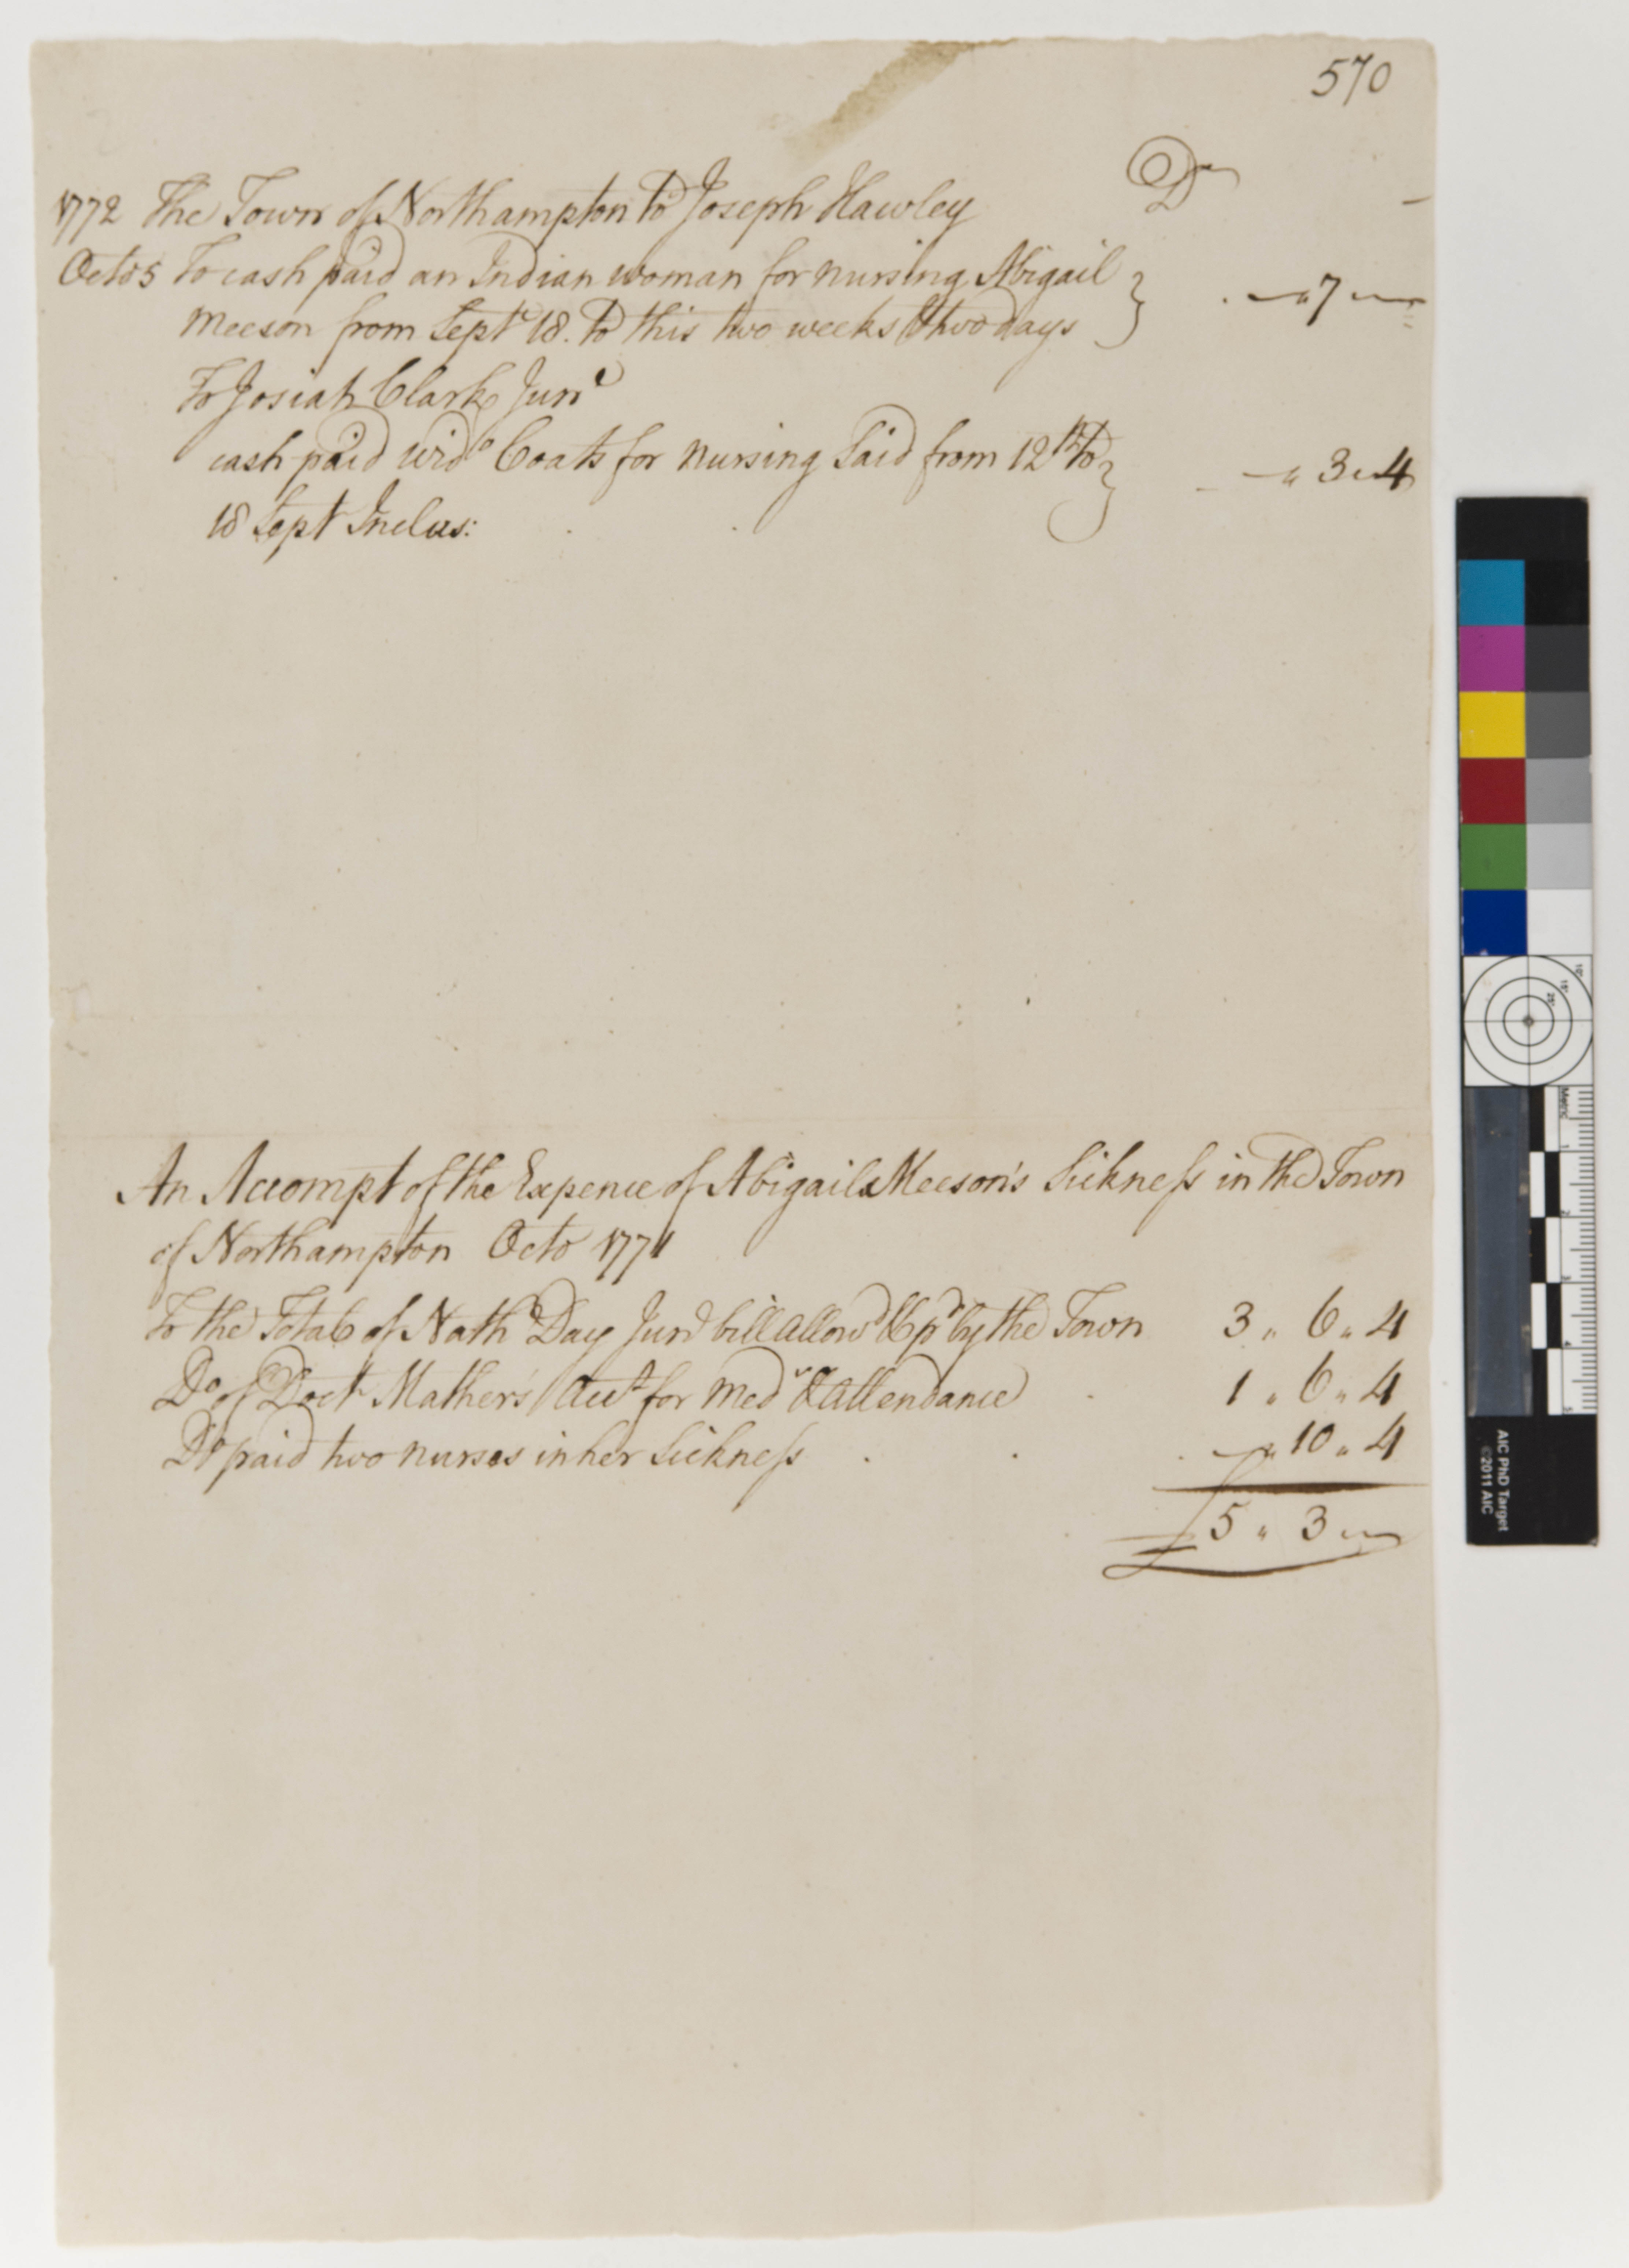 570
1772 The Town of Northampton to Joseph Hawley Dr
Octo 5 To cash paid an Indian woman for nursing Abigail
Meeson from Septr 18. to this two weeks & two days „ 7 „
To Josiah Clark Junr
cash paid wido Coats for nursing Said from 12th to
18 Sept Inclus: „ 3 „ 4
An Accompt of the Expence of Abigail Meeson's Sickness in the Town
of Northampton Octo 1771
To the Total of Nathll Day Junr bill allowd & pd by the Town 3 „ 6 „ 4
Do of Doctr Mather's Acct for Med & attendance 1 „ 6 „ 4
Do paid two nurses in her Sickness „ 10 „ 4
£5 „ 3 „
AIC PhD Target
©2011 AIC
Metric
1
2
3
4
5